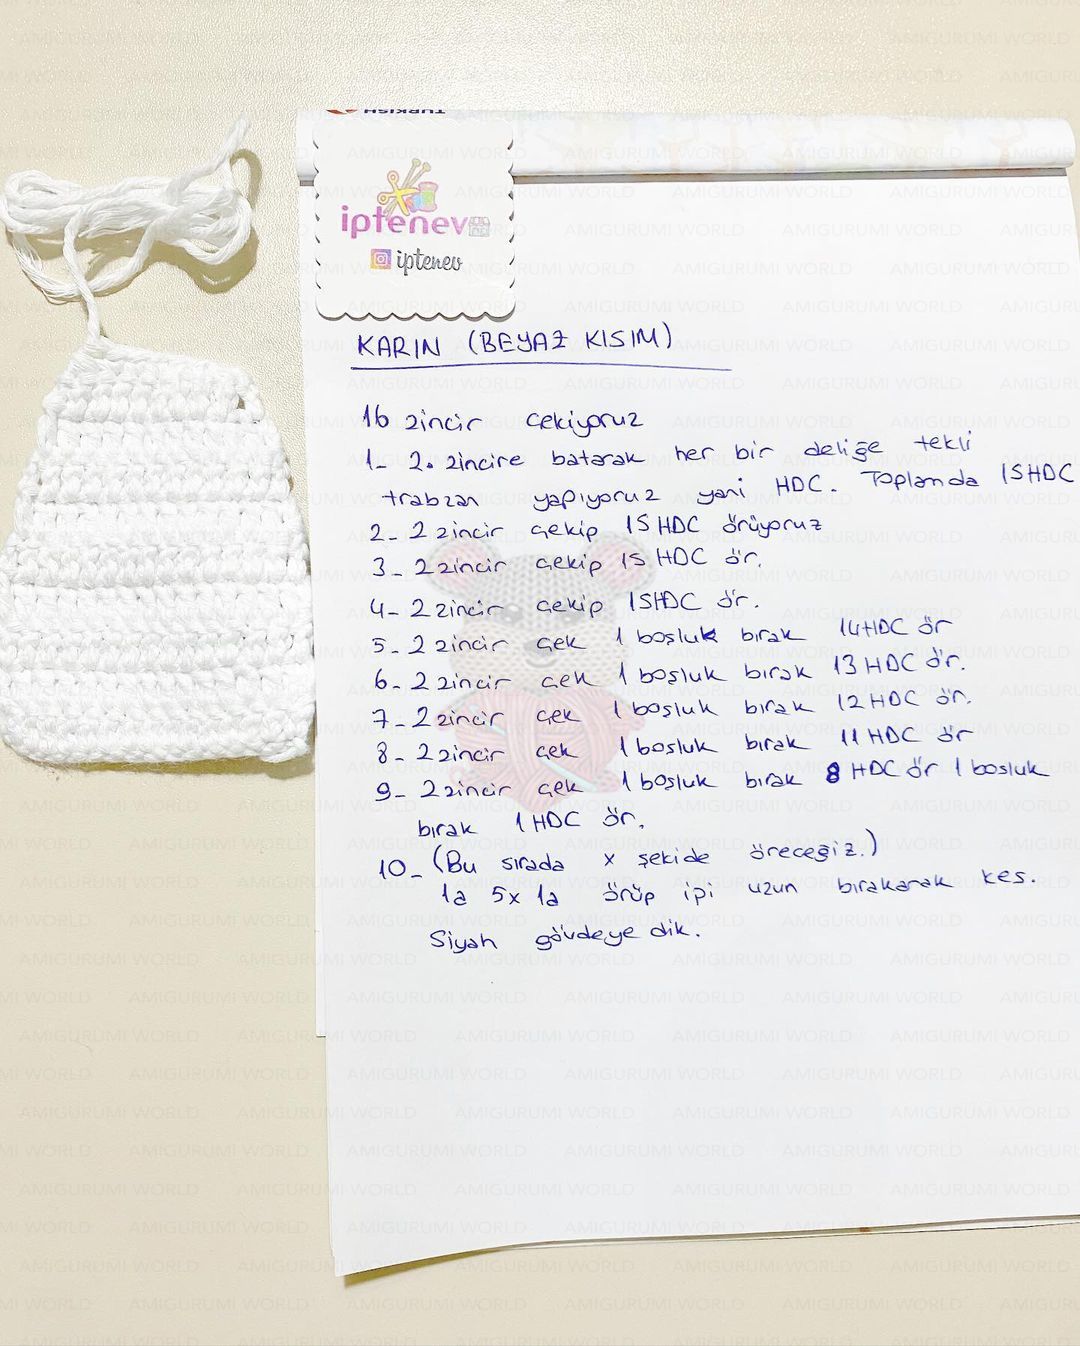 TURKISH
iptenev
iptenev
KARIN (BEYAZ KISIM)
16 zincir çekiyoruz
1- 2. zincire batarak her bir deliğe tekli
trabzan yapıyoruz yani HDC. Toplamda 15HDC
2- 2 zincir çekip 15 HDC örüyoruz
3- 2 zincir çekip 15 HDC ör.
4- 2 zincir çekip 15HDC ör.
5- 2 zincir çek 1 boşluk bırak 14HDC ör
6- 2 zincir çek 1 boşluk bırak 13 HDC ör.
7- 2 zincir çek 1 boşluk bırak 12 HDC ör.
8- 2 zincir çek 1 boşluk bırak 11 HDC ör
9- 2 zincir çek 1 boşluk bırak 8 HDC ör 1 boşluk
bırak 1 HDC ör.
10- (Bu sırada x şekide öreceğiz.)
1a 5x 1a örüp ipi uzun bırakarak kes.
Siyah gövdeye dik.
AMIGURUMI WORLD